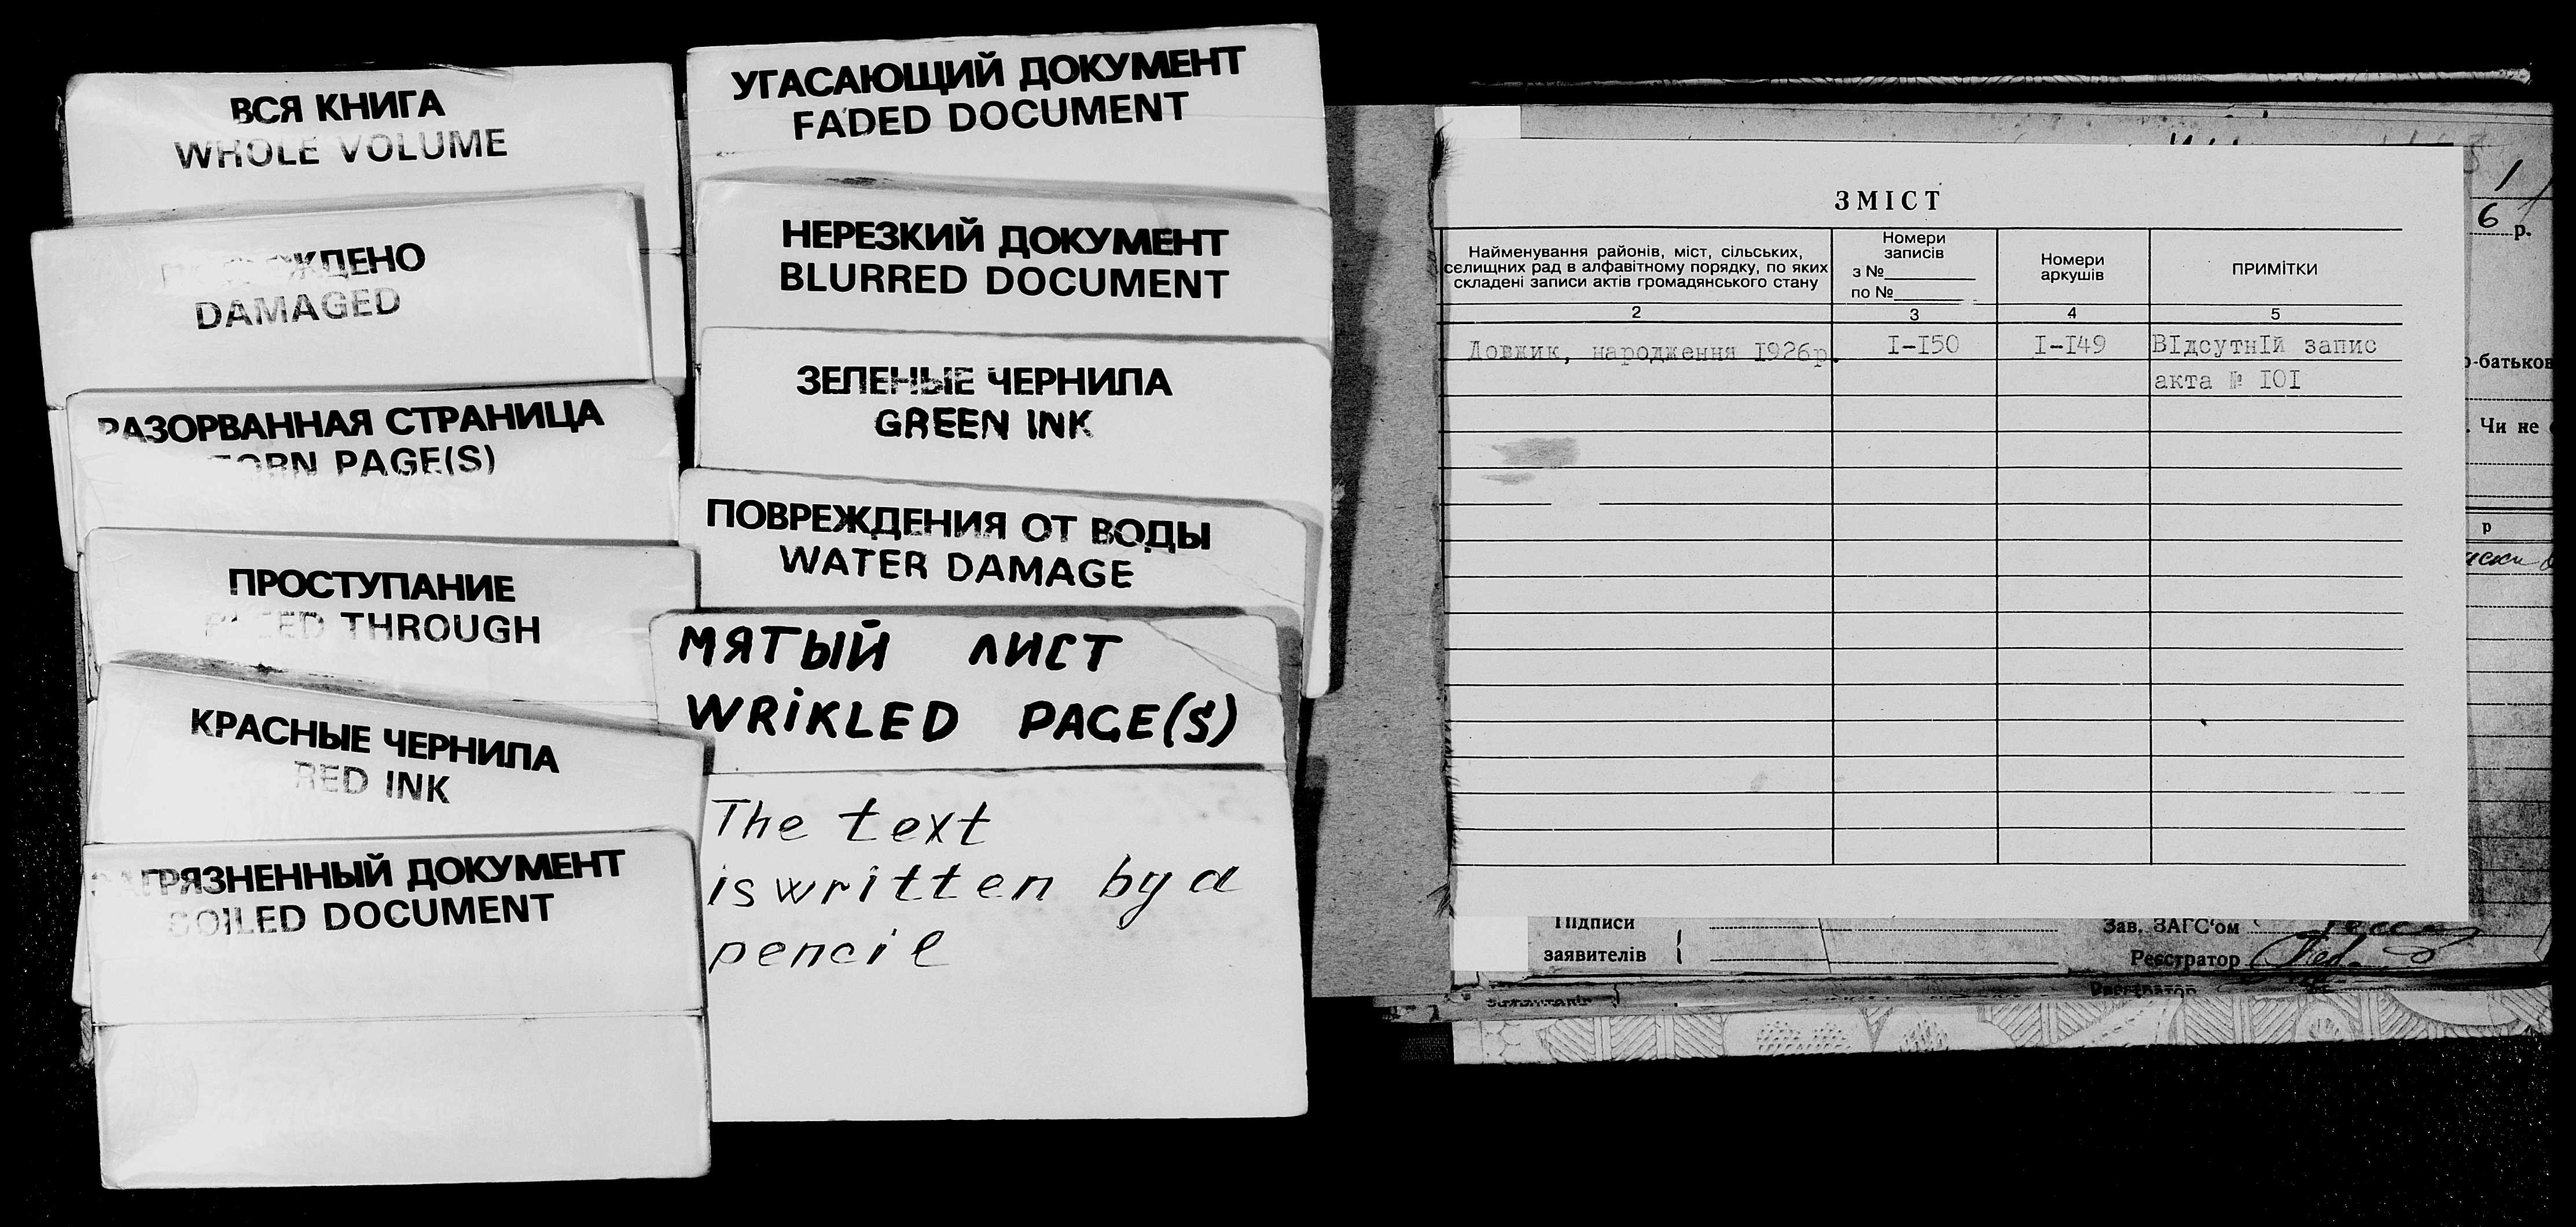 ВСЯ КНИГА
WHOLE VOLUME
DAMAGED
РАЗОРВАННАЯ СТРАНИЦА
TORN PAGE(S)
ПРОСТУПАНИЕ
THROUGH
КРАСНЫЕ ЧЕРНИЛА
RED INK
ЗАГРЯЗНЕННЫЙ ДОКУМЕНТ
SOILED DOCUMENT
УГАСАЮЩИЙ ДОКУМЕНТ
FADED DOCUMENT
НЕРЕЗКИЙ ДОКУМЕНТ
BLURRED DOCUMENT
ЗЕЛЕНЫЕ ЧЕРНИЛА
GREEN INK
ПОВРЕЖДЕНИЯ ОТ ВОДЫ
WATER DAMAGE
МЯТЫЙ ЛИСТ
WRIKLED PAGE(S)
The text
is written by a
pencil
ЗМІСТ
Найменування районів, міст, сільських,
селищних рад в алфавітному порядку, по яких
складені записи актів громадянського стану
Номери
записів
з №
по №
Номери
аркушів
ПРИМІТКИ
2 3 4 5
Довжик, народження I926р. I-I50 I-I49 ВIдсутнIй запис
акта № IOI
6 р.
Чи не
р
Підписи
заявителів
Зав. ЗАГС'ом
Реєстратор
Реєстратор